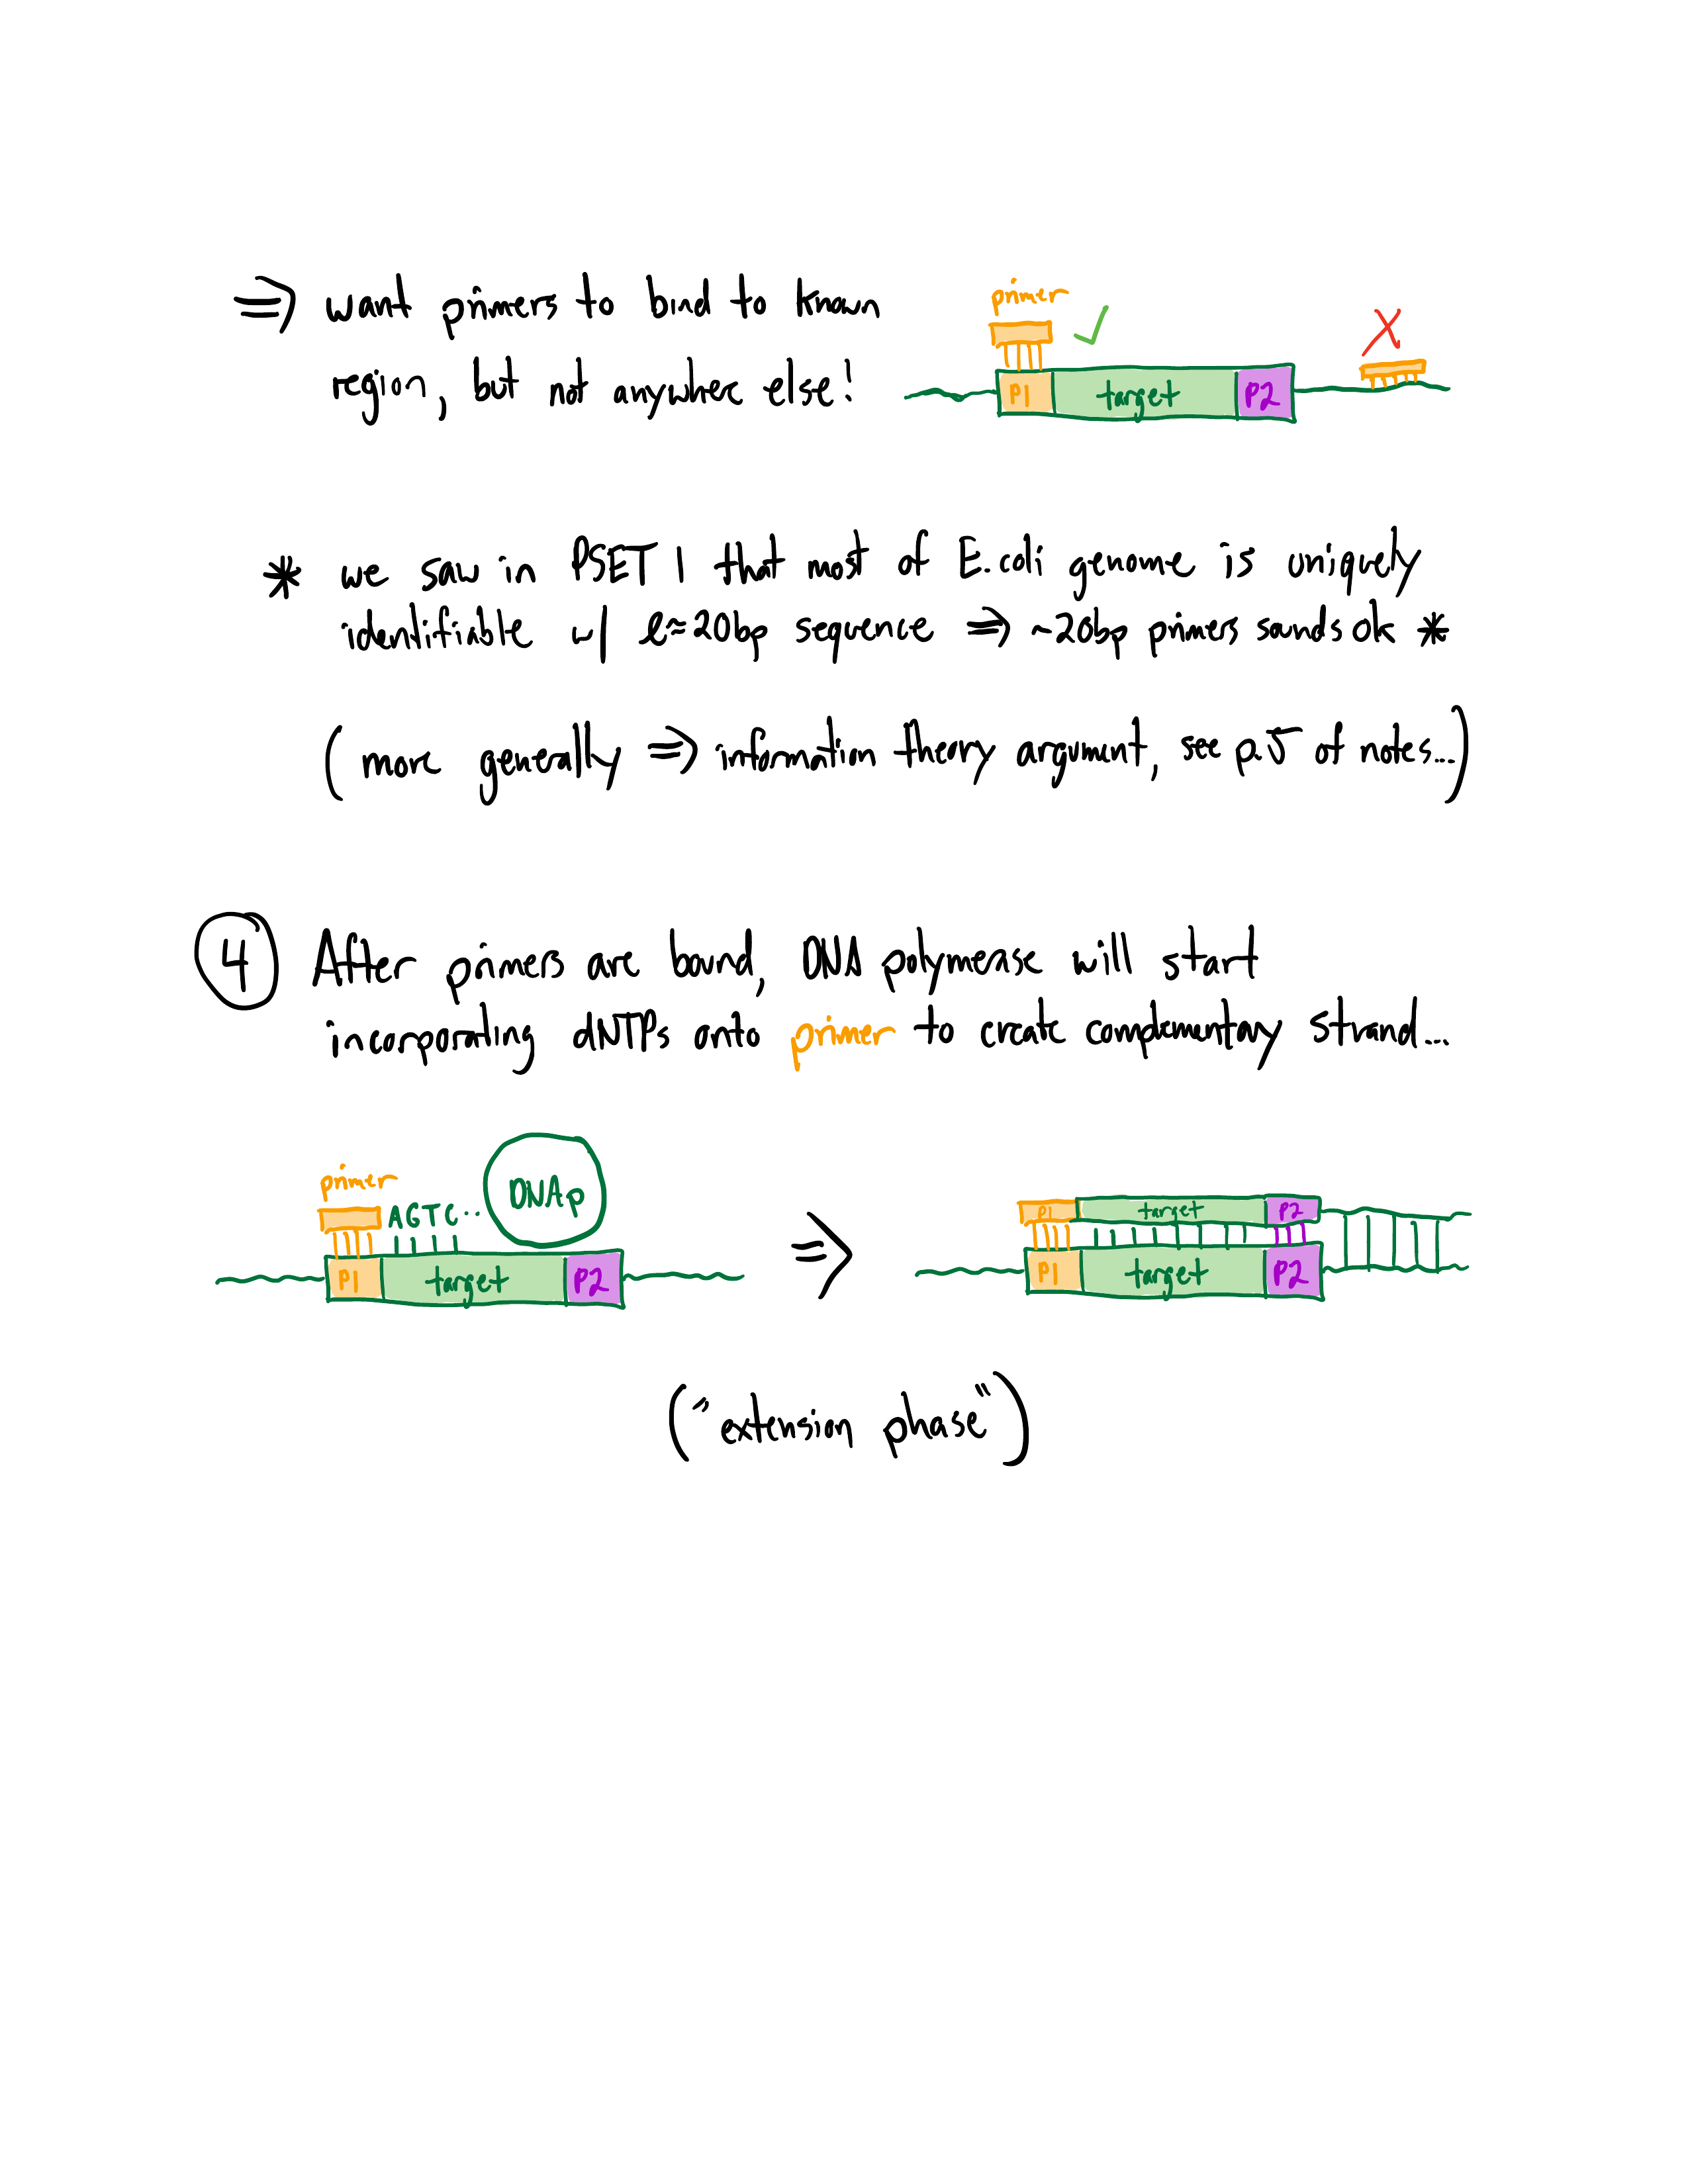 ⇒ want primers to bind to known
region, but not anywhere else!
primer
✓
X
P1 target P2
* we saw in PSET 1 that most of E.coli genome is uniquely
identifiable w/ ℓ≈20bp sequence ⇒ ~20bp primers sounds ok *
(more generally ⇒ information theory argument, see p.5 of notes...)
4 After primers are bound, DNA polymerase will start
incorporating dNTPs onto primer to create complementary strand...
primer
AGTC.. DNAp
P1 target P2
⇒
P1 target P2
P1 target P2
("extension phase")